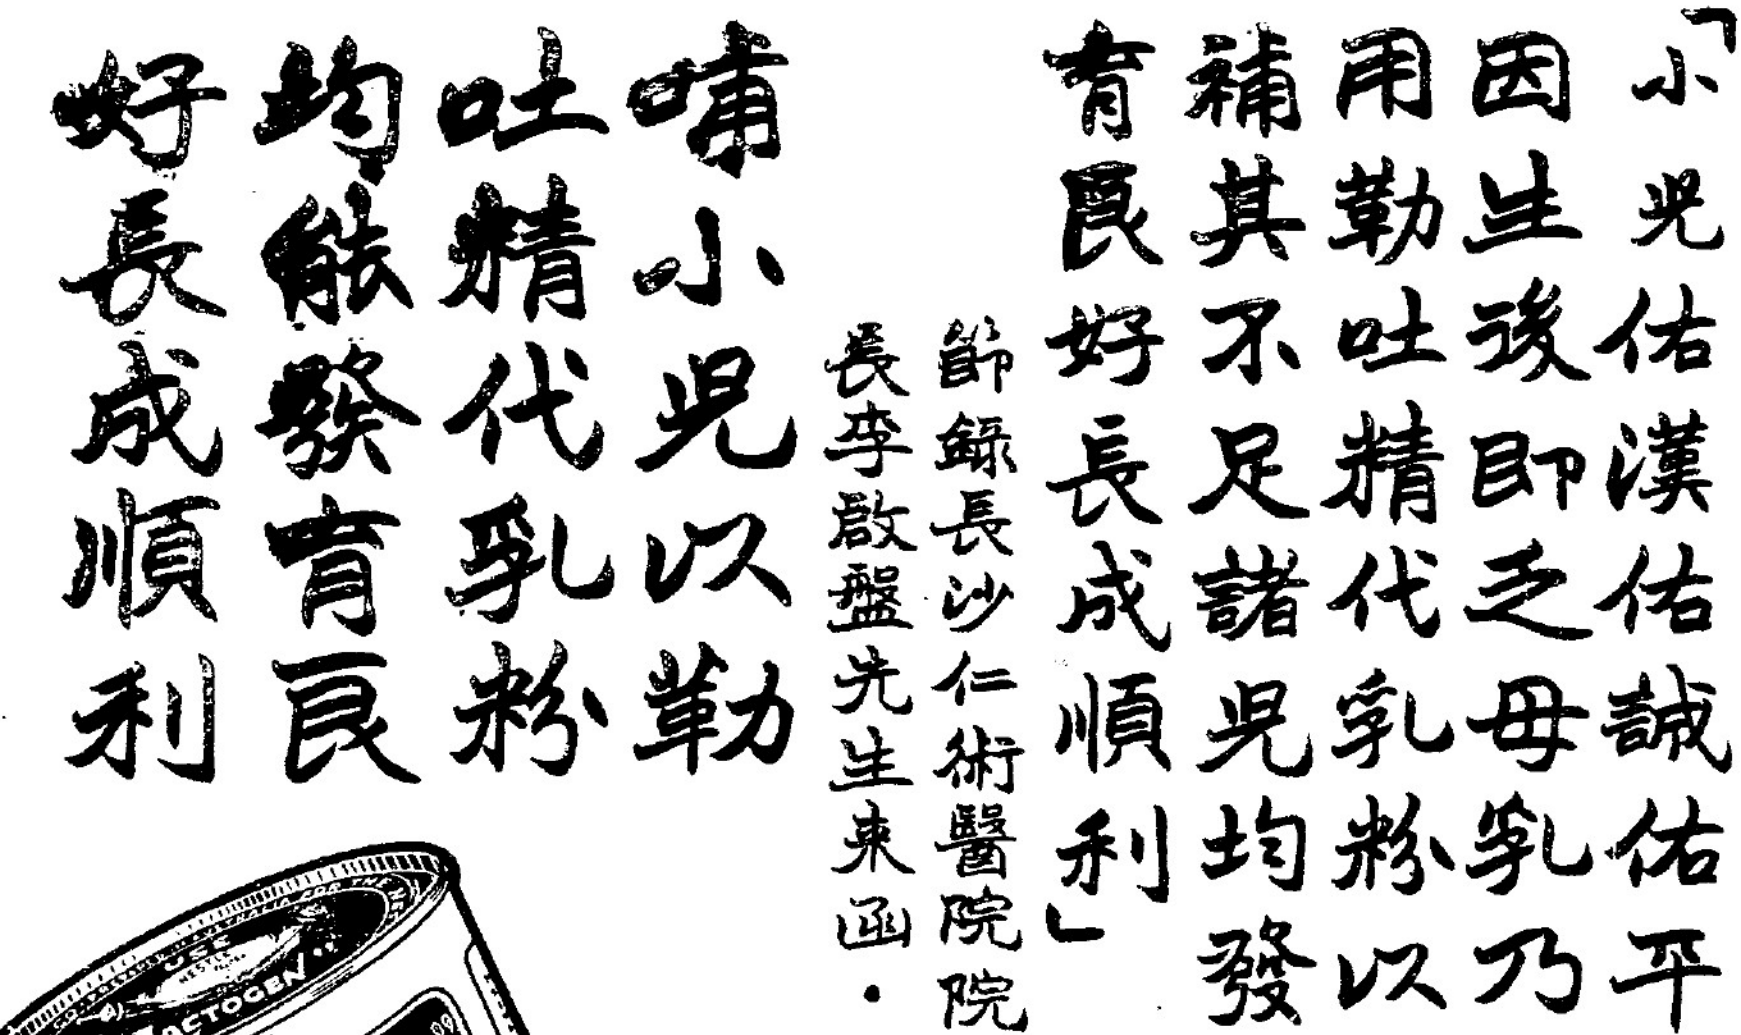 「小兒佑漢佑誠佑平
因生後即乏母乳乃
用勒吐精代乳粉以
補其不足諸兒均發
育良好長成順利」
節錄長沙仁術醫院院
長李啟盤先生來函．
哺小兒以勒
吐精代乳粉
均能發育良
好長成順利
USE
NESTLÉ
LACTOGEN